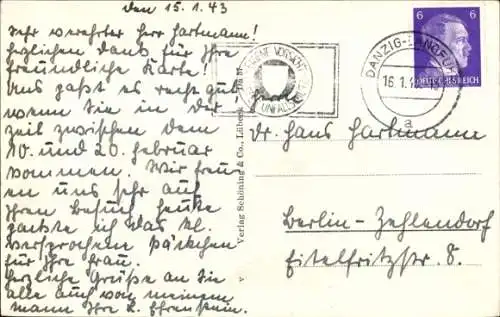 den 15.1.43
Sehr verehrter Herr Hartmann!
Herzlichen Dank für Ihre
freundliche Karte!
Uns paßt es recht gut
wenn Sie in der
Zeit zwischen dem
10. und 20. Februar
kommen. Wir freu-
en uns sehr auf
Ihren Besuch. Heute
packte ich das kl.
versprochene Päckchen
für Ihre Frau.
Herzliche Grüße an Sie
alle auch von meinem
Mann Ihre
Verlag Schöning & Co., Lübeck
VORSICHT
UNFALL
DANZIG-LANGFUHR
16.1.
a
6 6
DEUTSCHES REICH
Dr. Hans Hartmann
Berlin-Zehlendorf
Eitelfritzstr. 8.